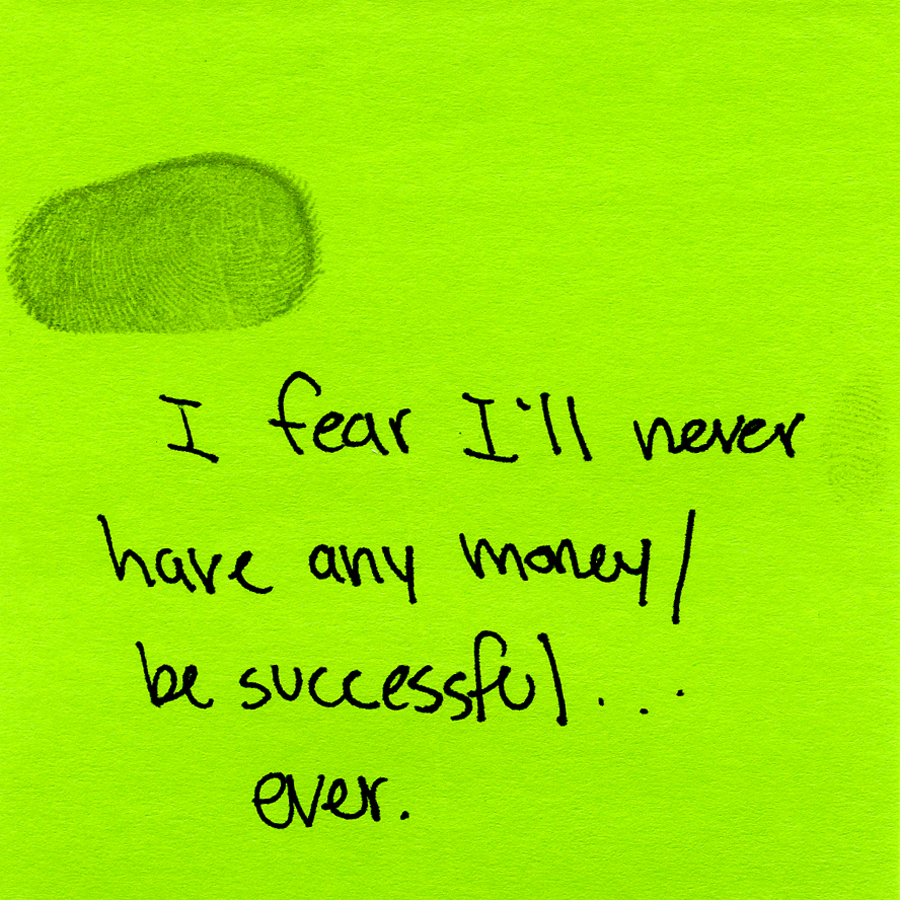 I fear I'll never
have any money/
be successful...
ever.